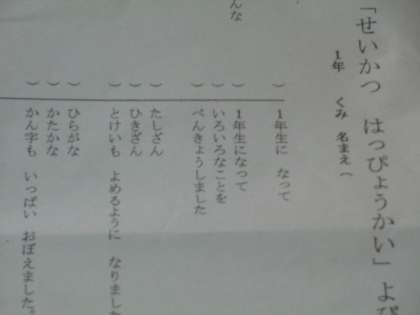 「せいかつ　はっぴょうかい」よび
1年　くみ　名まえ（
）　1年生に　なって
）　1年生になって
いろいろなことを
）　べんきょうしました
）　たしざん
）　ひきざん
）　とけいも　よめるように　なりました
）　ひらがな
）　かたかな
）　かん字も　いっぱい　おぼえました。
んな